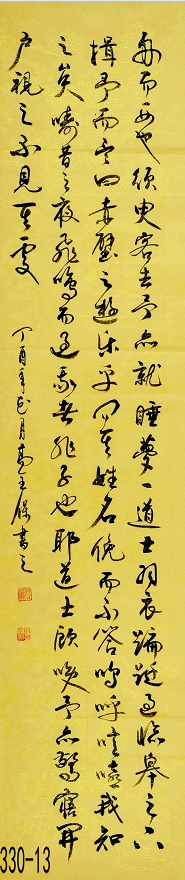 舟而西也須臾客去予亦就睡夢一道士羽衣蹁躚過臨皋之下
揖予而言曰赤壁之遊樂乎問其姓名俛而不答嗚呼噫嘻我知
之矣疇昔之夜飛鳴而過我者非子也耶道士顧笑予亦驚寤開
戶視之不見其處
丁酉年月高玉保書之
330-13